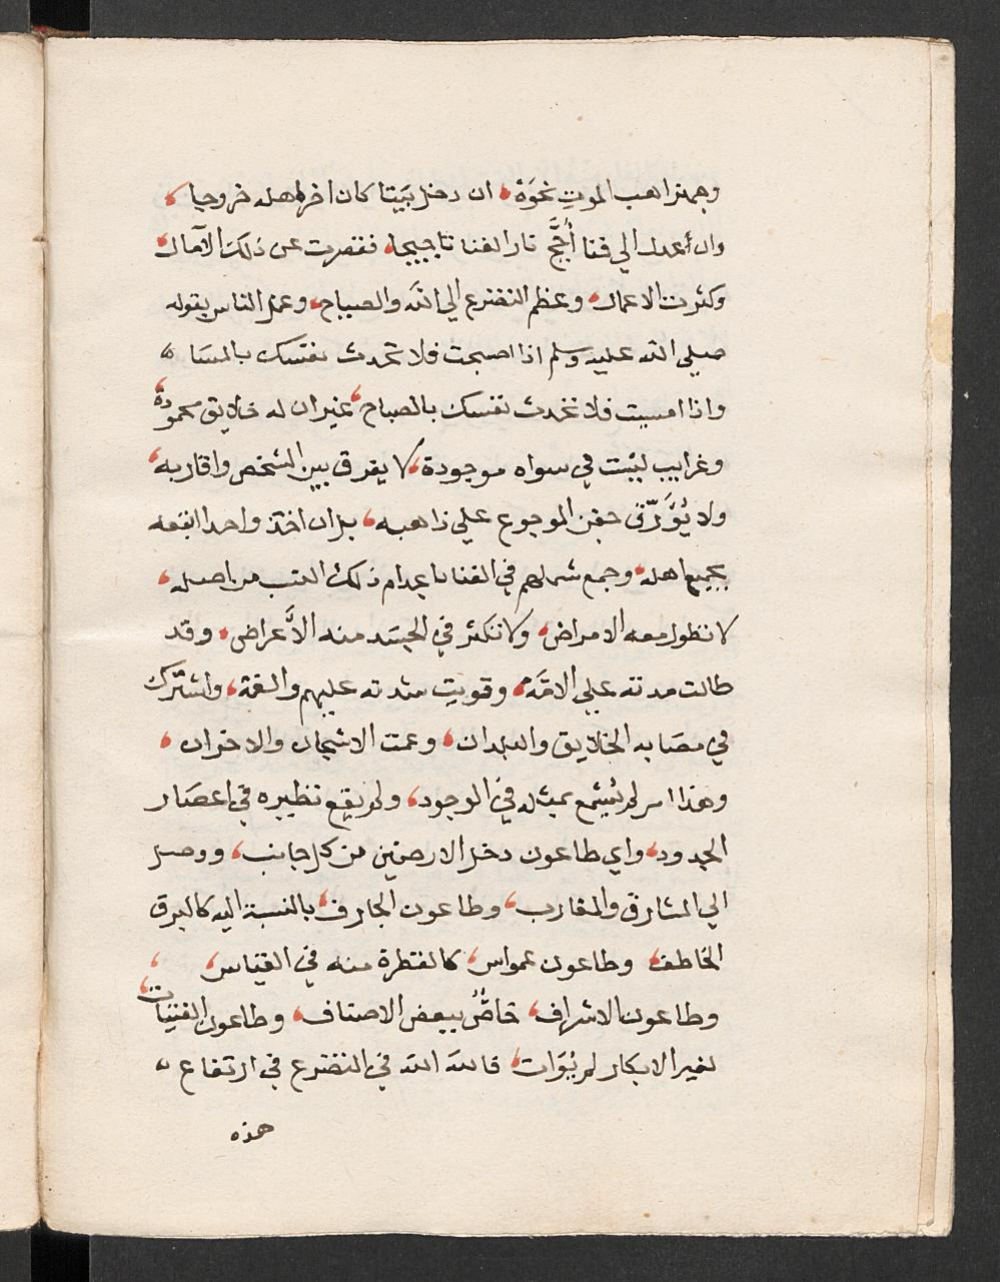 وجهز اهب الموت نحوة، ان دخل بَيتا كان اخر اهله خروجا،
وان أعدل الي فنا أُجَّج نار الفنا تاجيجا، فقصرت عن ذلك الآمال،
وكثرت الاعمال، وعظم التضرع الي الله والصياح، وعمل الناس بقوله
صلي الله عليه وسلم اذا اصبحت فلا تحدث نفسك بالمسَا
واذا امسيت فلا تحدث نفسك بالصباح، غير ان له خلايق محمودة،
وغرايب ليست في سواه موجودة، لا يفرق بين الشخص واقاربه،
ولا يُؤَرّق جفن الموجوع علي ذاهبه، بل ان اخذ واحدا اتبعه
بجميع اهله، وجمع شملهم في الفنا باعدام ذلك العتب من اصله،
لا تطول معه الامراض، ولا تكثر في الجسَد منه الأَعراض، وقد
طالت مدته علي الامَّة، وقويت شدته عليهم والغمة، واشترك
في مصَابه الخلايق والبلدان، وعمت الاشجان والاحزان،
وهذا امر لم يُسْمع بمثله في الوجود، ولم يقع نظيره في اعصَار
الجدود، واي طاعون دخل الارضين من كل جانب، ووصل
الي المشارق والمغارب، وطاعون الجارف، بالنسبة اليه كالبرق
الخاطف، وطاعون عمواس، كالقطرة منه في القياس،
وطاعون الاشراف، خاصٌّ ببعض الاصناف، وطاعون الفتيات،
لغير الابكار لم يُوَات، فالله الله في التضرع في ارتفاع
هذه